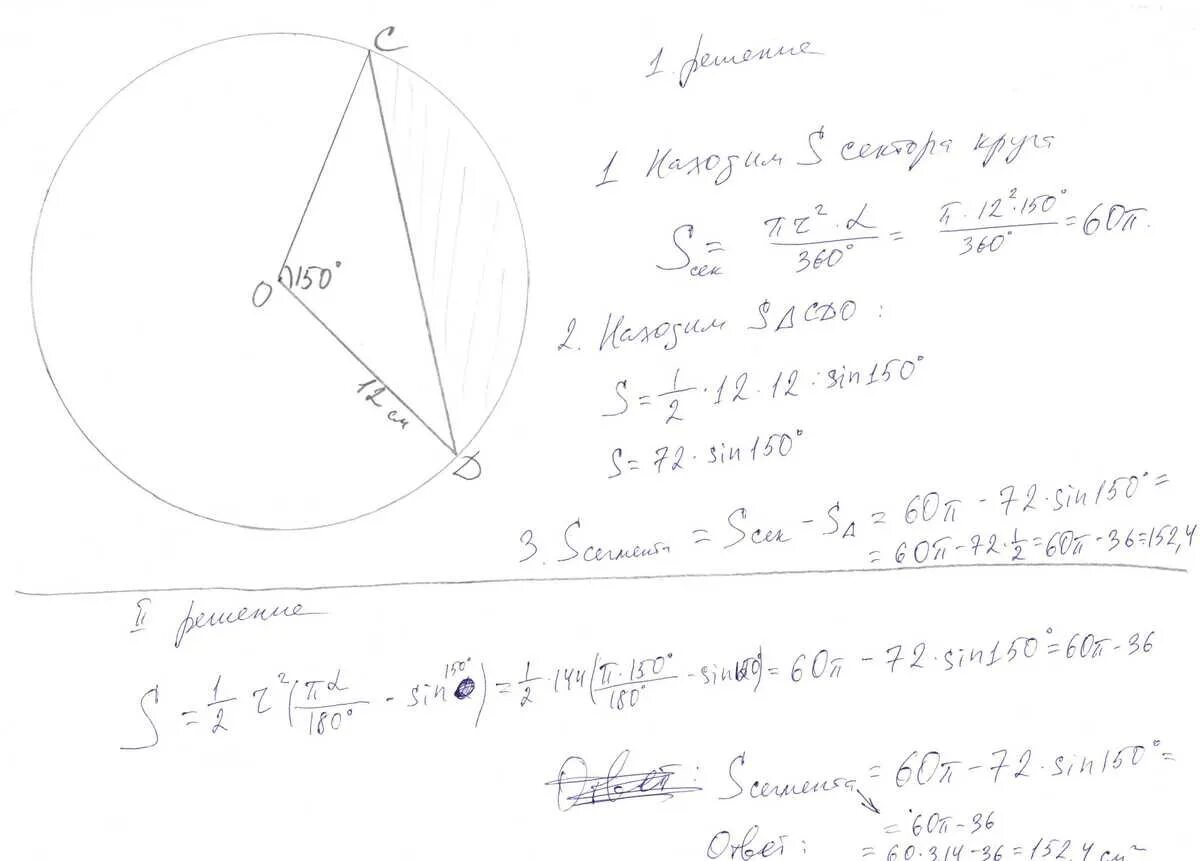 C
O
150°
12 см
D
1. решение
1 Находим S сектора круга
Sсек = πr²·α/360° = π·12²·150°/360° = 60π.
2. Находим S△CDO:
S = 1/2 · 12 · 12 · sin150°
S = 72 · sin150°
3. Sсегмента = Sсек − S△ = 60π − 72·sin150° =
= 60π − 72·1/2 = 60π − 36 = 152,4
II решение
S = 1/2 r² (πα/180° − sin 150°) = 1/2 · 144 (π·150°/180° − sin150°) = 60π − 72·sin150° = 60π − 36
Ответ: Sсегмента = 60π − 72·sin150° =
= 60π − 36
Ответ: = 60·3,14 − 36 = 152,4 см²